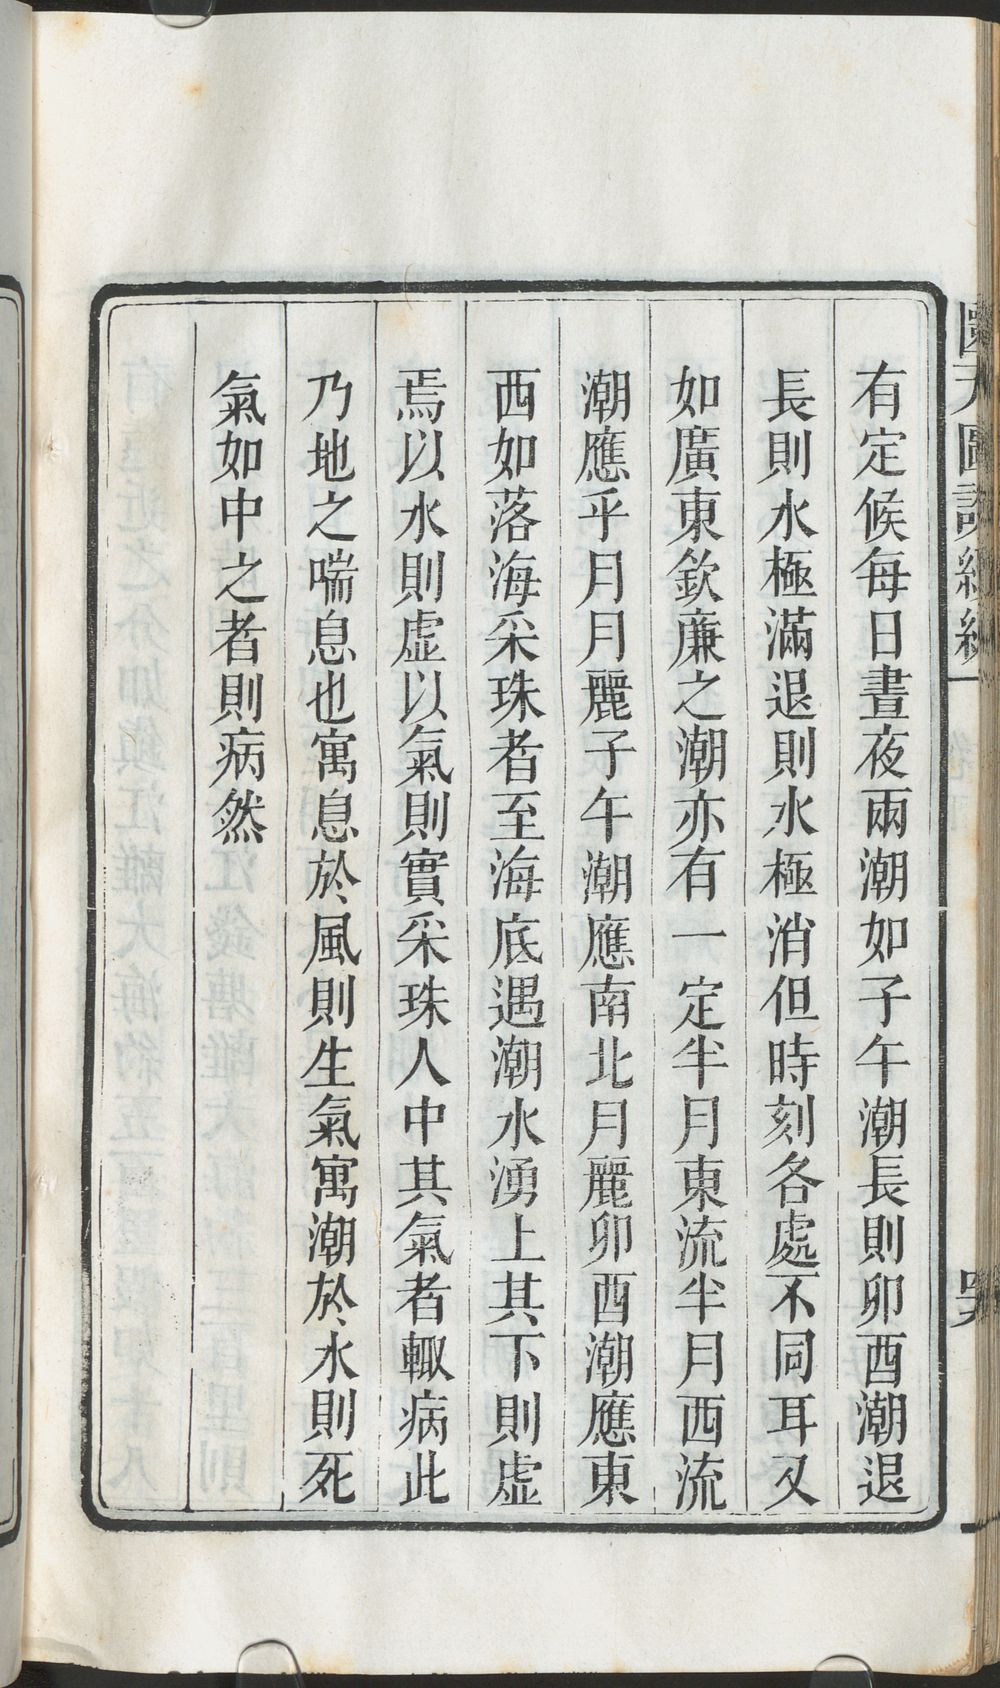 有定候每日晝夜兩潮如子午潮長則卯酉潮退
長則水極滿退則水極消但時刻各處不同耳又
如廣東欽廉之潮亦有一定半月東流半月西流
潮應乎月月麗子午潮應南北月麗卯酉潮應東
西如落海采珠者至海底遇潮水湧上其下則虛
焉以水則虛以氣則實采珠人中其氣者輙病此
乃地之喘息也寓息於風則生氣寓潮於水則死
氣如中之者則病然